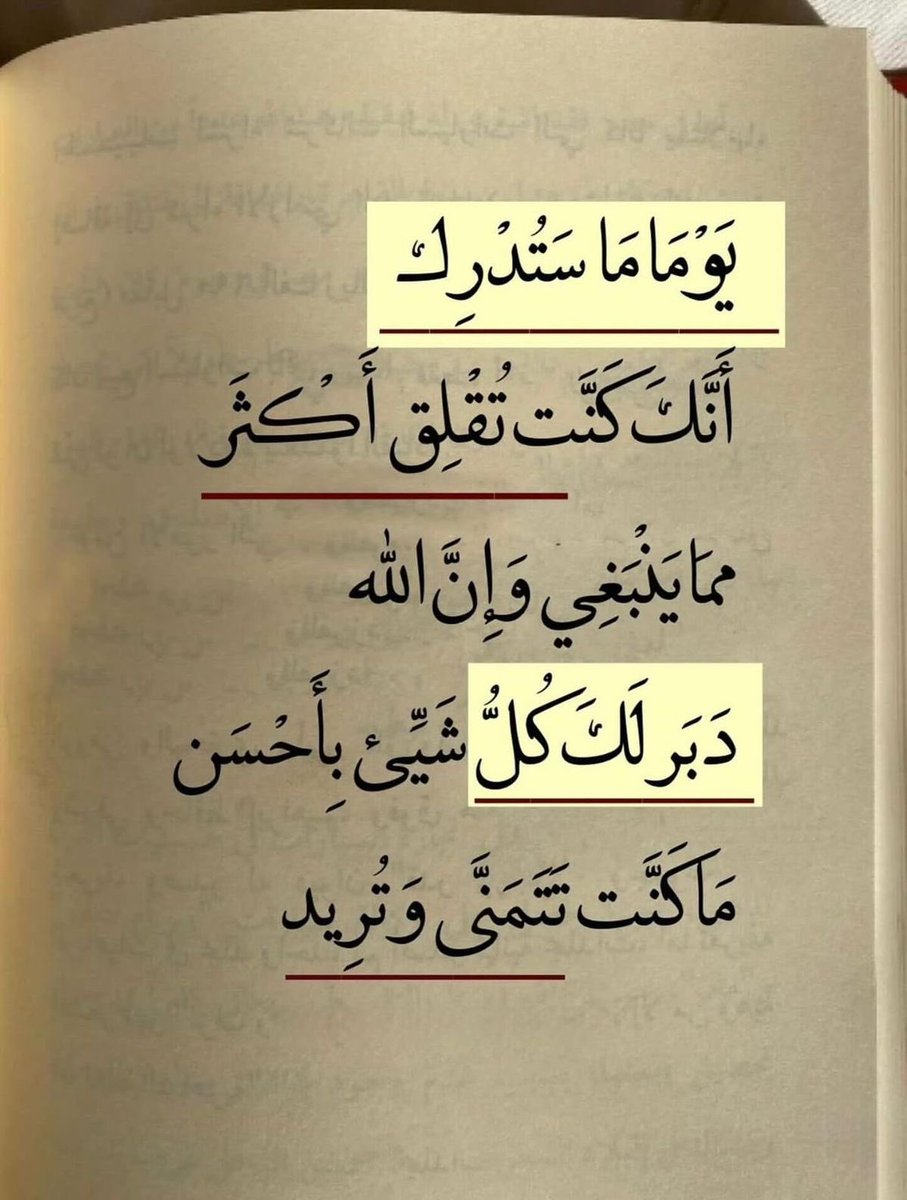 يَوْمَا مَا سَتُدْرِك
أَنَّكَ كَنَّت تُقْلِق أَكْثَر
مما يَنْبَغِي وَإِنَّ الله
دَبَر لَكَ كُلُّ شَيِّئ بِأَحْسَن
مَا كَنَّت تَتَمَنَّى وَتُرِيد